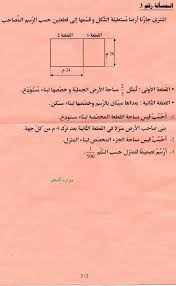 المسألة رقم 3
اشترى جارنا أرضا مستطيلة الشكل و قسمها إلى قطعتين حسب الرسم المصاحب
القطعة 2 القطعة 1
20 م
24 م
• القطعة الأولى : تمثل مساحة الأرض الجملية و خصصها لبناء مستودع.
• القطعة الثانية : بعداها مبينان بالرسم وخصصها لبناء مسكن.
1- أحسب قيس مساحة القطعة المخصصة لبناء مستودع.
بنى صاحب الأرض منزلا في القطعة الثانية بعد ترك 4 م من كل جهة.
2- أحسب قيس مساحة الجزء المخصص للمنزل.
3- أرسم تصميما للمنزل حسب السلم 1/500
موارد المعلم
2/2